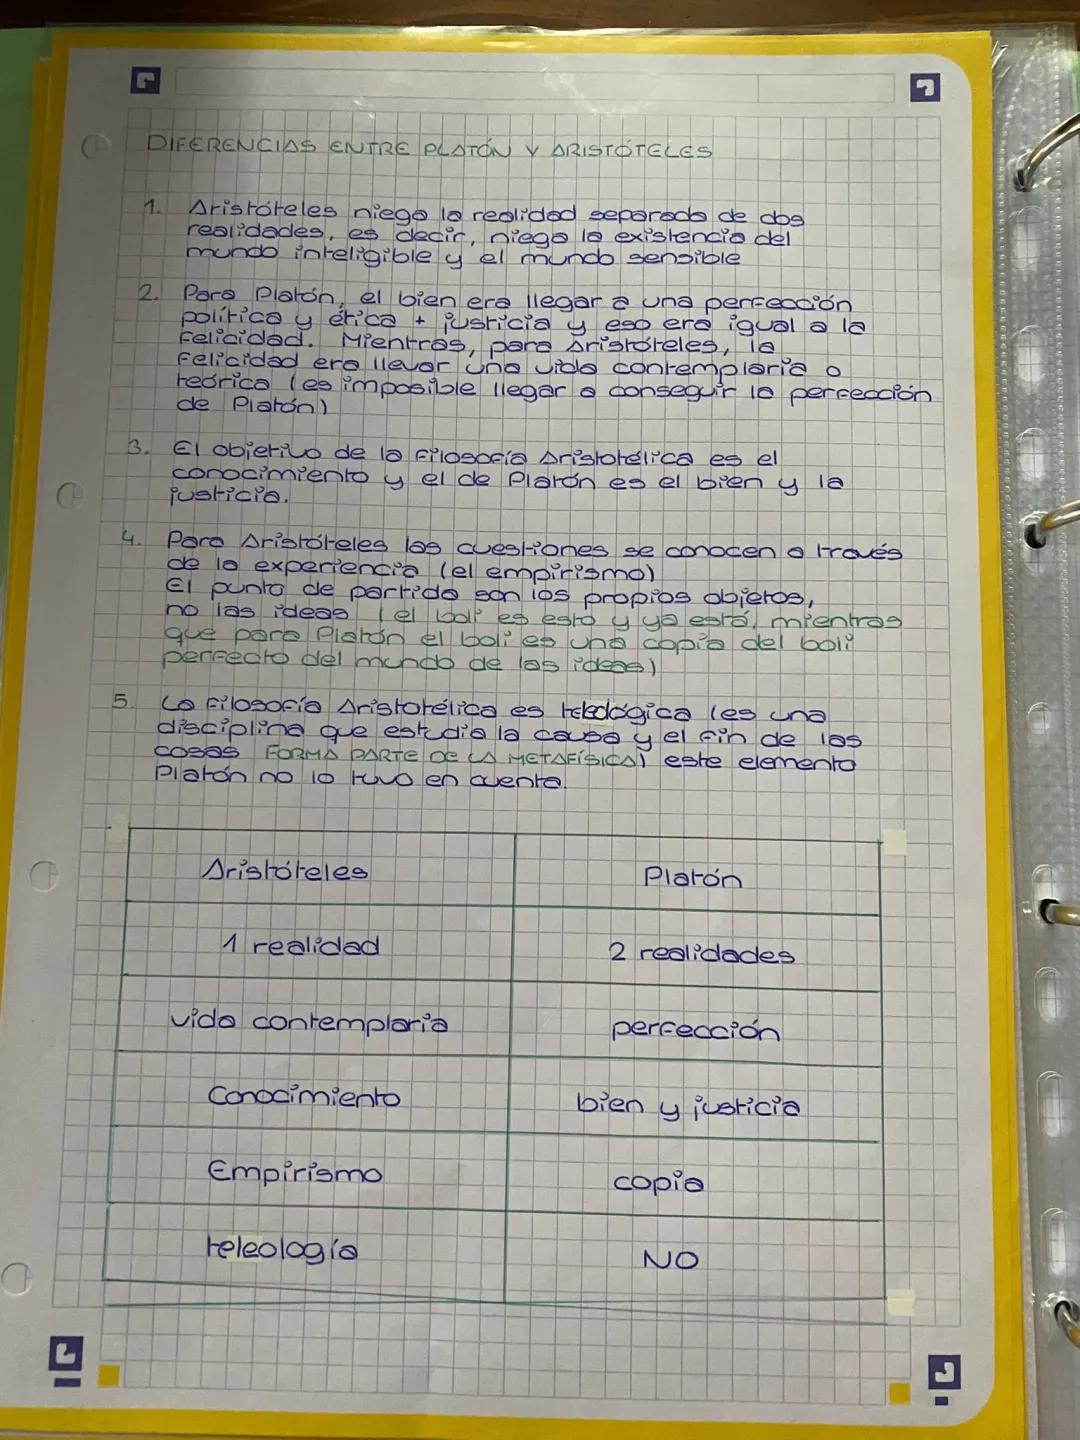 DIFERENCIAS ENTRE PLATÓN Y ARISTÓTELES
1. Aristóteles niega la realidad separada de dos
realidades, es decir, niega la existencia del
mundo inteligible y el mundo sensible
2. Para Platón, el bien era llegar a una perfección
política y ética + justicia y eso era igual a la
felicidad. Mientras, para Aristóteles, la
felicidad era llevar una vida contemplaria o
teórica (es imposible llegar a conseguir la perfección
de Platón)
3. El objetivo de la filosofía Aristotélica es el
conocimiento y el de Platón es el bien y la
justicia.
4. Para Aristóteles las cuestiones se conocen a través
de la experiencia (el empirismo)
El punto de partida son los propios objetos,
no las ideas (el boli es esto y ya está, mientras
que para Platón el boli es una copia del boli
perfecto del mundo de las ideas)
5. La filosofía Aristotélica es teleológica (es una
disciplina que estudia la causa y el fin de las
cosas FORMA PARTE DE LA METAFÍSICA) este elemento
Platón no lo tuvo en cuenta.
Aristóteles Platón
1 realidad 2 realidades
vida contemplaria perfección
Conocimiento bien y justicia
Empirismo copia
teleología NO